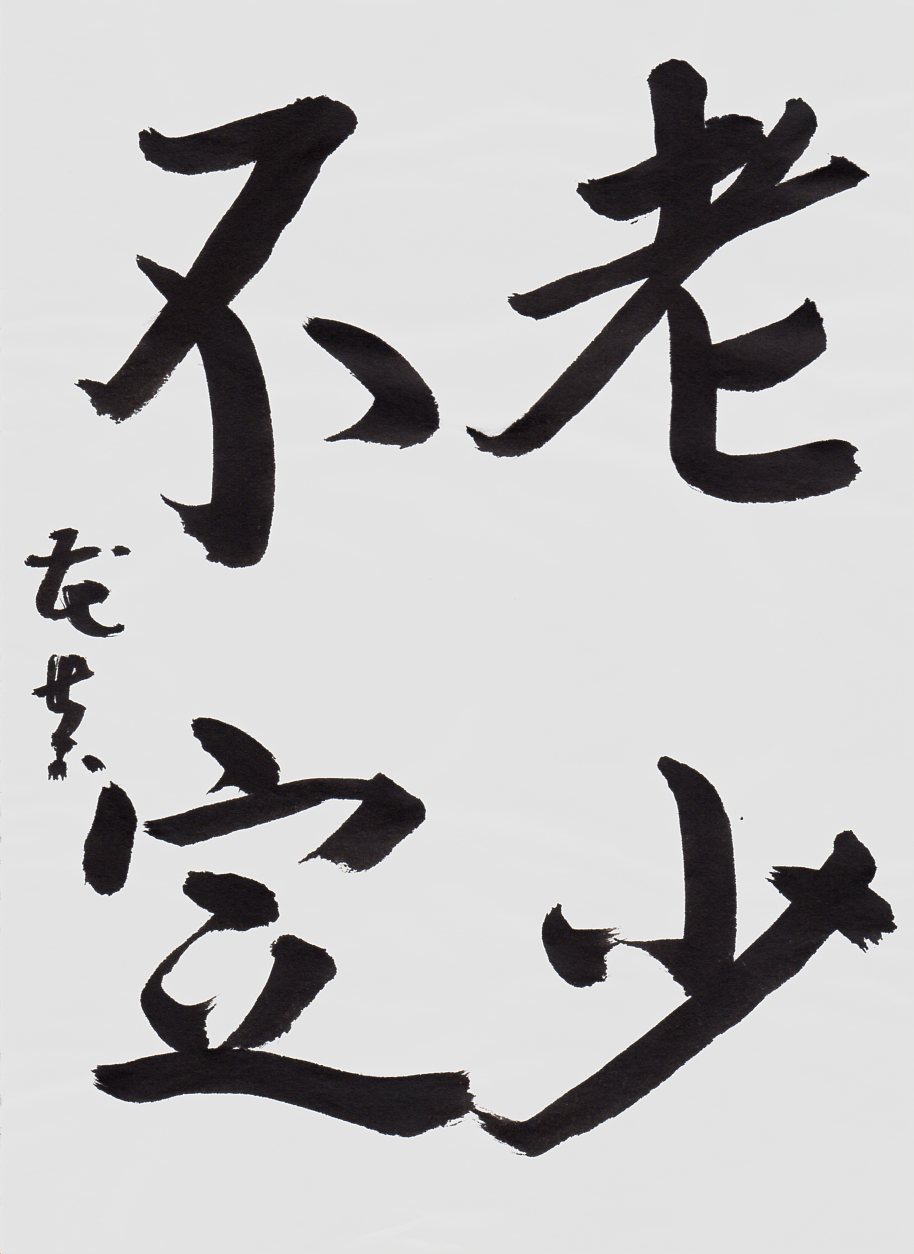 老少
不定